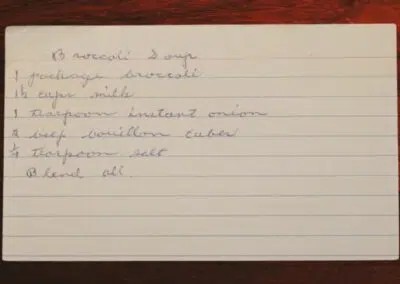 Broccoli Soup
1 package broccoli
1½ cups milk
1 teaspoon instant onion
2 beef bouillon cubes
¼ teaspoon salt
Blend all.